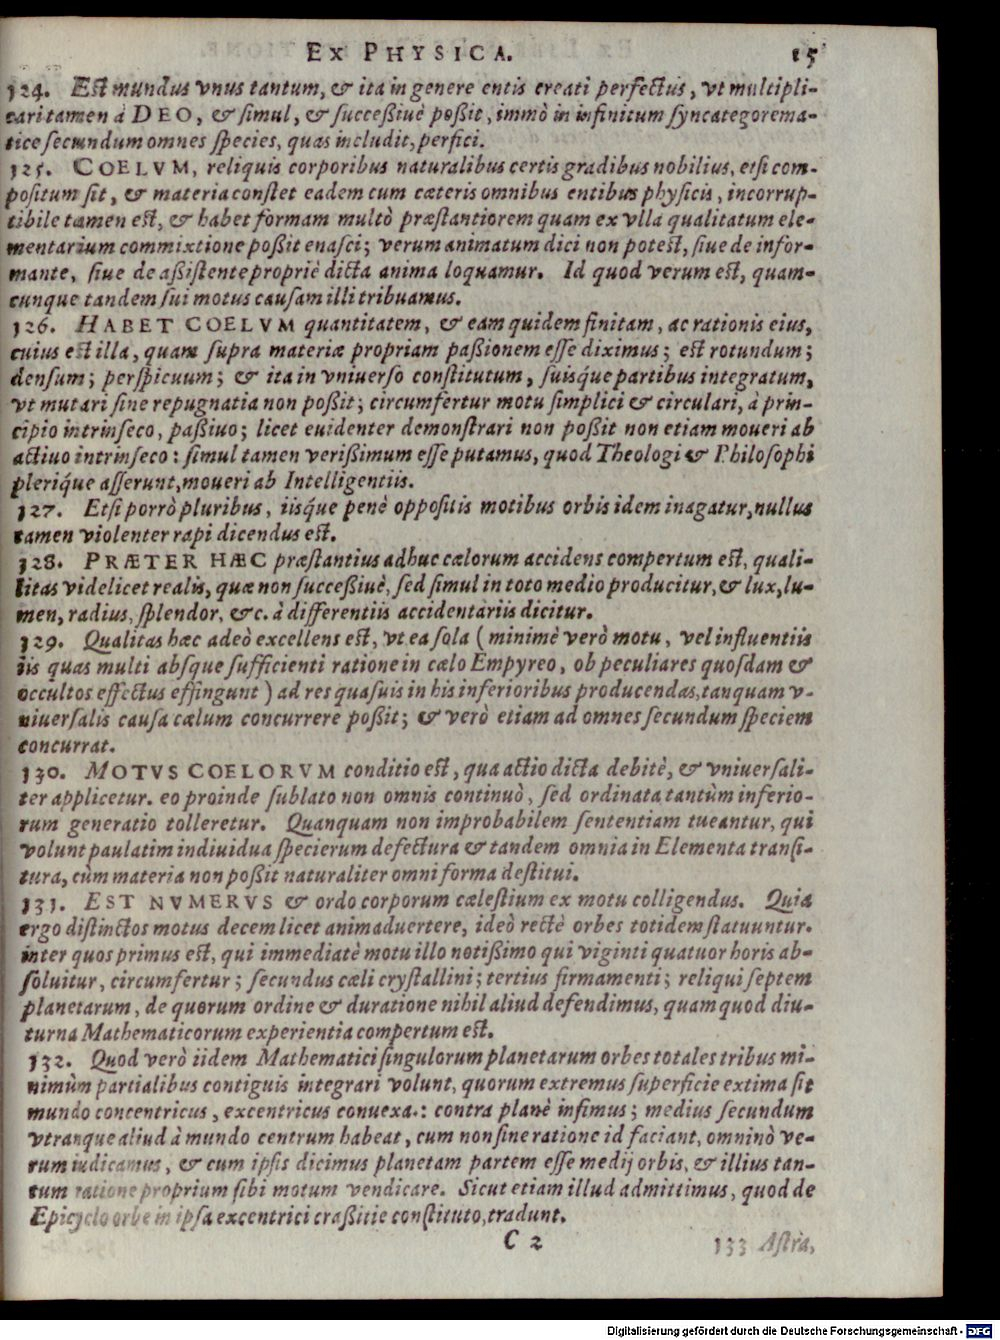 EX PHYSICA. 15
124. Est mundus vnus tantum, & ita in genere entis creati perfectus, vt multipli-
cari tamen à DEO, & simul, & succeßiuè poßit, immò in infinitum syncategorema-
tice secundum omnes species, quas includit, perfici.
125. COELVM, reliquis corporibus naturalibus certis gradibus nobilius, etsi com-
positum sit, & materia constet eadem cum cæteris omnibus entibus physicis, incorrup-
tibile tamen est, & habet formam multò præstantiorem quam ex vlla qualitatum ele-
mentarium commixtione poßit enasci; verum animatum dici non potest, siue de infor-
mante, siue de aßistente propriè dicta anima loquamur. Id quod verum est, quam-
cunque tandem sui motus causam illi tribuamus.
126. HABET COELVM quantitatem, & eam quidem finitam, ac rationis eius,
cuius est illa, quam supra materiæ propriam paßionem esse diximus; est rotundum;
densum; perspicuum; & ita in vniuerso constitutum, suisq́ue partibus integratum,
vt mutari sine repugnatia non poßit; circumfertur motu simplici & circulari, à prin-
cipio intrinseco, paßiuo; licet euidenter demonstrari non poßit non etiam moueri ab
actiuo intrinseco: simul tamen verißimum esse putamus, quod Theologi & Philosophi
pleriq́ue asserunt, moueri ab Intelligentiis.
127. Etsi porrò pluribus, iisq́ue penè oppositis motibus orbis idem inagatur, nullus
tamen violenter rapi dicendus est.
128. PRÆTER HÆC præstantius adhuc cælorum accidens compertum est, quali-
litas videlicet realis, quæ non succeßiuè, sed simul in toto medio producitur, & lux, lu-
men, radius, splendor, &c. à differentiis accidentariis dicitur.
129. Qualitas hæc adeò excellens est, vt ea sola (minimè verò motu, vel influentiis
iis quas multi absque sufficienti ratione in cælo Empyreo, ob peculiares quosdam &
occultos effectus effingunt) ad res quasuis in his inferioribus producendas, tanquam v-
niuersalis causa cælum concurrere poßit; & verò etiam ad omnes secundum speciem
concurrat.
130. MOTVS COELORVM conditio est, qua actio dicta debitè, & vniuersali-
ter applicetur. eo proinde sublato non omnis continuò, sed ordinata tantùm inferio-
rum generatio tolleretur. Quanquam non improbabilem sententiam tueantur, qui
volunt paulatim indiuidua specierum defectura & tandem omnia in Elementa transi-
tura, cùm materia non poßit naturaliter omni forma destitui.
131. EST NVMERVS & ordo corporum cælestium ex motu colligendus. Quia
ergo distinctos motus decem licet animaduertere, ideò rectè orbes totidem statuuntur.
inter quos primus est, qui immediatè motu illo notißimo qui viginti quatuor horis ab-
soluitur, circumfertur; secundus cæli crystallini; tertius firmamenti; reliqui septem
planetarum, de quorum ordine & duratione nihil aliud defendimus, quam quod diu-
turna Mathematicorum experientia compertum est.
132. Quod verò iidem Mathematici singulorum planetarum orbes totales tribus mi-
nimùm partialibus contiguis integrari volunt, quorum extremus superficie extima sit
mundo concentricus, excentricus conuexa.: contra planè infimus; medius secundum
vtranque aliud à mundo centrum habeat, cum non sine ratione id faciant, omninò ve-
rum iudicamus, & cum ipsis dicimus planetam partem esse medij orbis, & illius tan-
tum ratione proprium sibi motum vendicare. Sicut etiam illud admittimus, quod de
Epicyclo orbe in ipsa excentrici craßitie constituto, tradunt.
C 2 133 Astra,
Digitalisierung gefördert durch die Deutsche Forschungsgemeinschaft - DFG